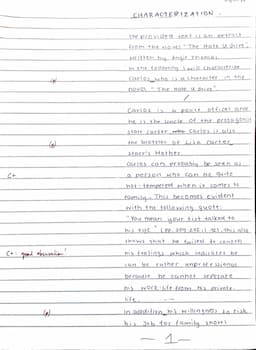 CHARACTERIZATION.
The provided text is an extract
from the novel "The Hate U Give",
written by Angie Thomas.
In the following I will characterize
Carlos, who is a character in the
novel "The Hate U Give".
Carlos is a police officer and
he is the uncle of the protagonist
Starr Carter. Carlos is also
the brother of Lisa Carter,
Starr's Mother.
Carlos can probably be seen as
C+
a person who can be quite
hot-tempered when it comes to
family. This becomes evident
with the following quote:
"You mean your fist talked to
his eye"
shows that he failed to control
C+: good observation!
his feelings which indicates he
can be rather unprofessional
because he cannot seperate
his work life from his private
life.
In addition, his willingness to risk
his job for family shows
- 1 -